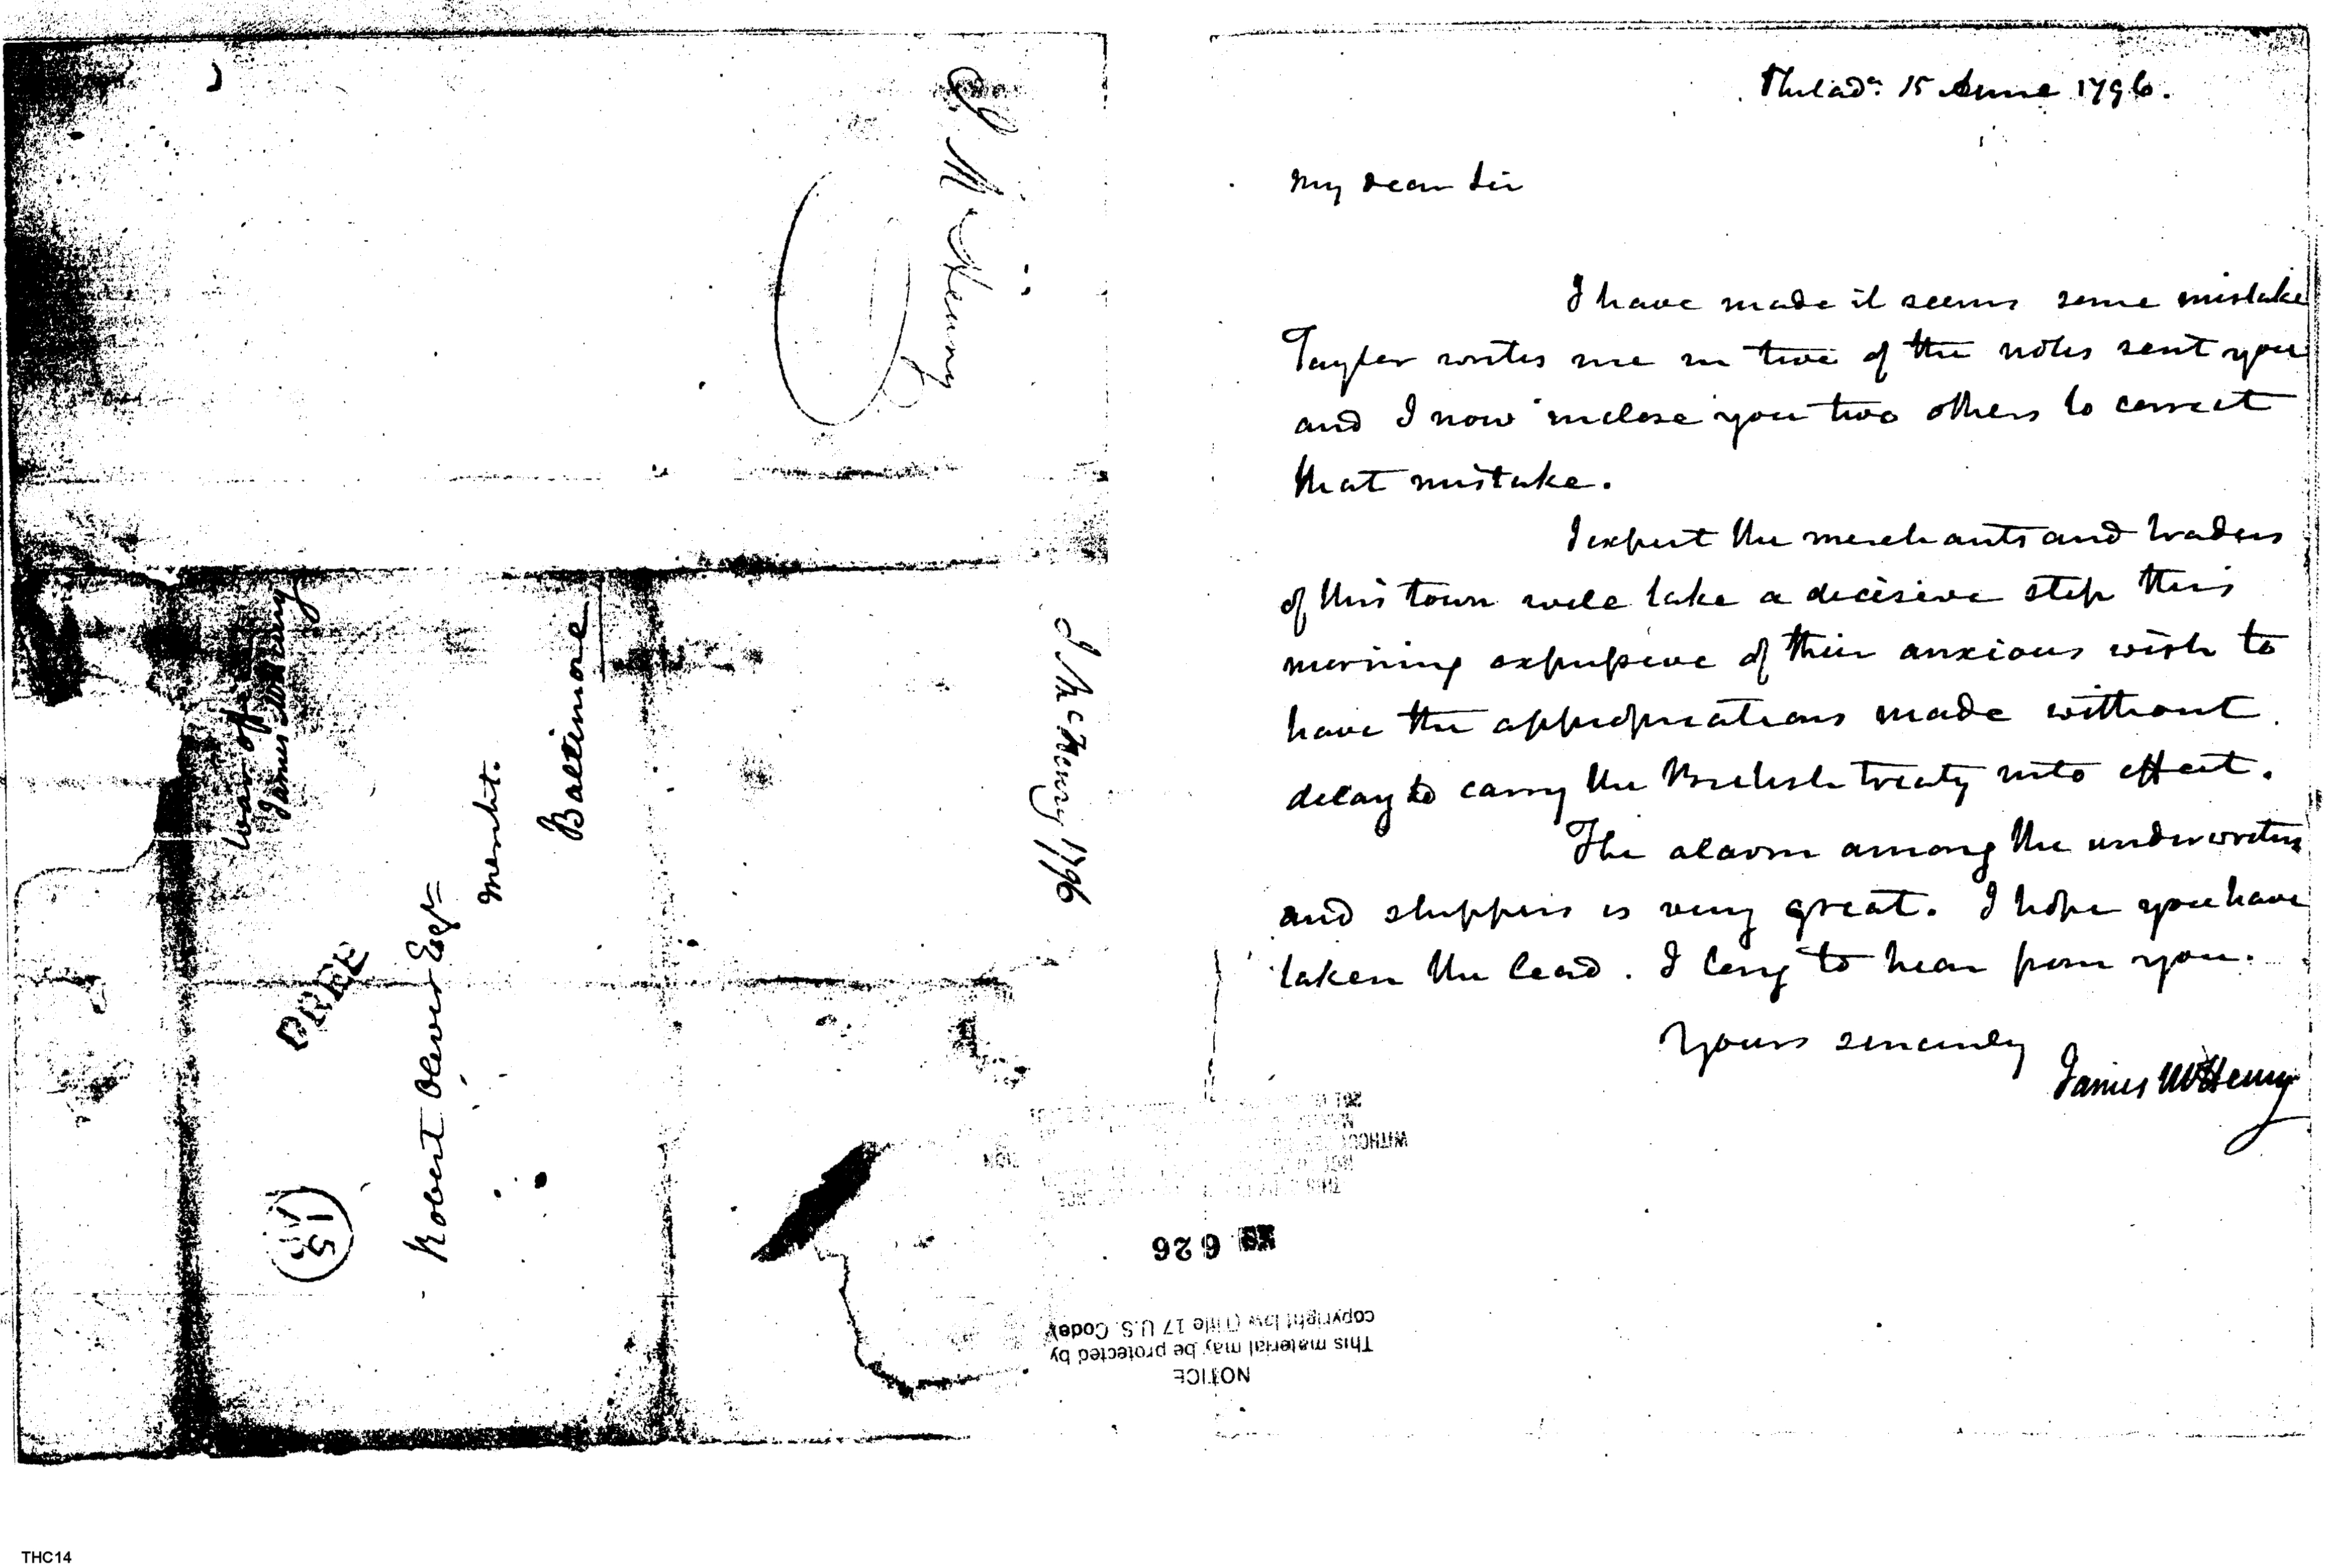 J McHenry
War off
James McHenry
FREE
15
Robert Oliver Esqr
Mercht.
Baltimore
J McHenry 1796
Philada. 15 June 1796.
My dear Sir
I have made it seems some mistake
Tayler writes me in two of the notes sent you
and I now inclose you two others to correct
that mistake.
I expect the merchants and traders
of this town will take a decisive step this
morning expressive of their anxious wish to
have the appropriations made without
delay to carry the British treaty into effect.
The alarm among the underwriters
and shippers is very great. I hope you have
taken the lead. I long to hear from you.
Yours sincerely
James McHenry
WITHOUT
626
NOTICE
This material may be protected by
copyright law (Title 17 U.S. Code)
THC14